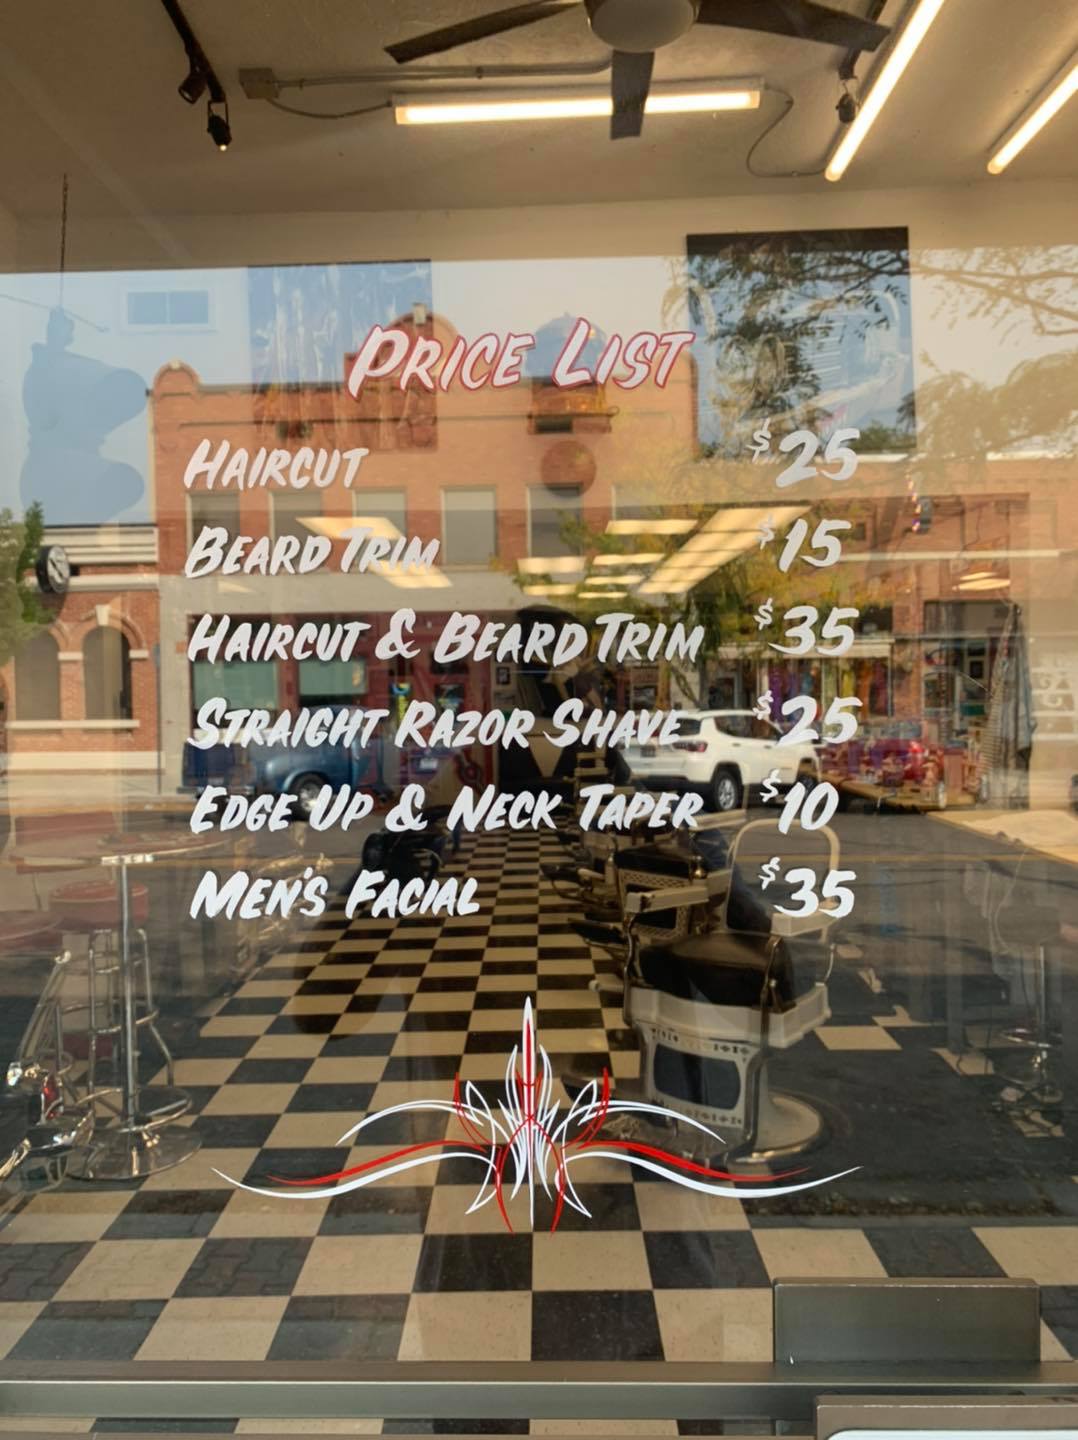 PRICE LIST
HAIRCUT $25
BEARD TRIM $15
HAIRCUT & BEARD TRIM $35
STRAIGHT RAZOR SHAVE $25
EDGE UP & NECK TAPER $10
MEN'S FACIAL $35